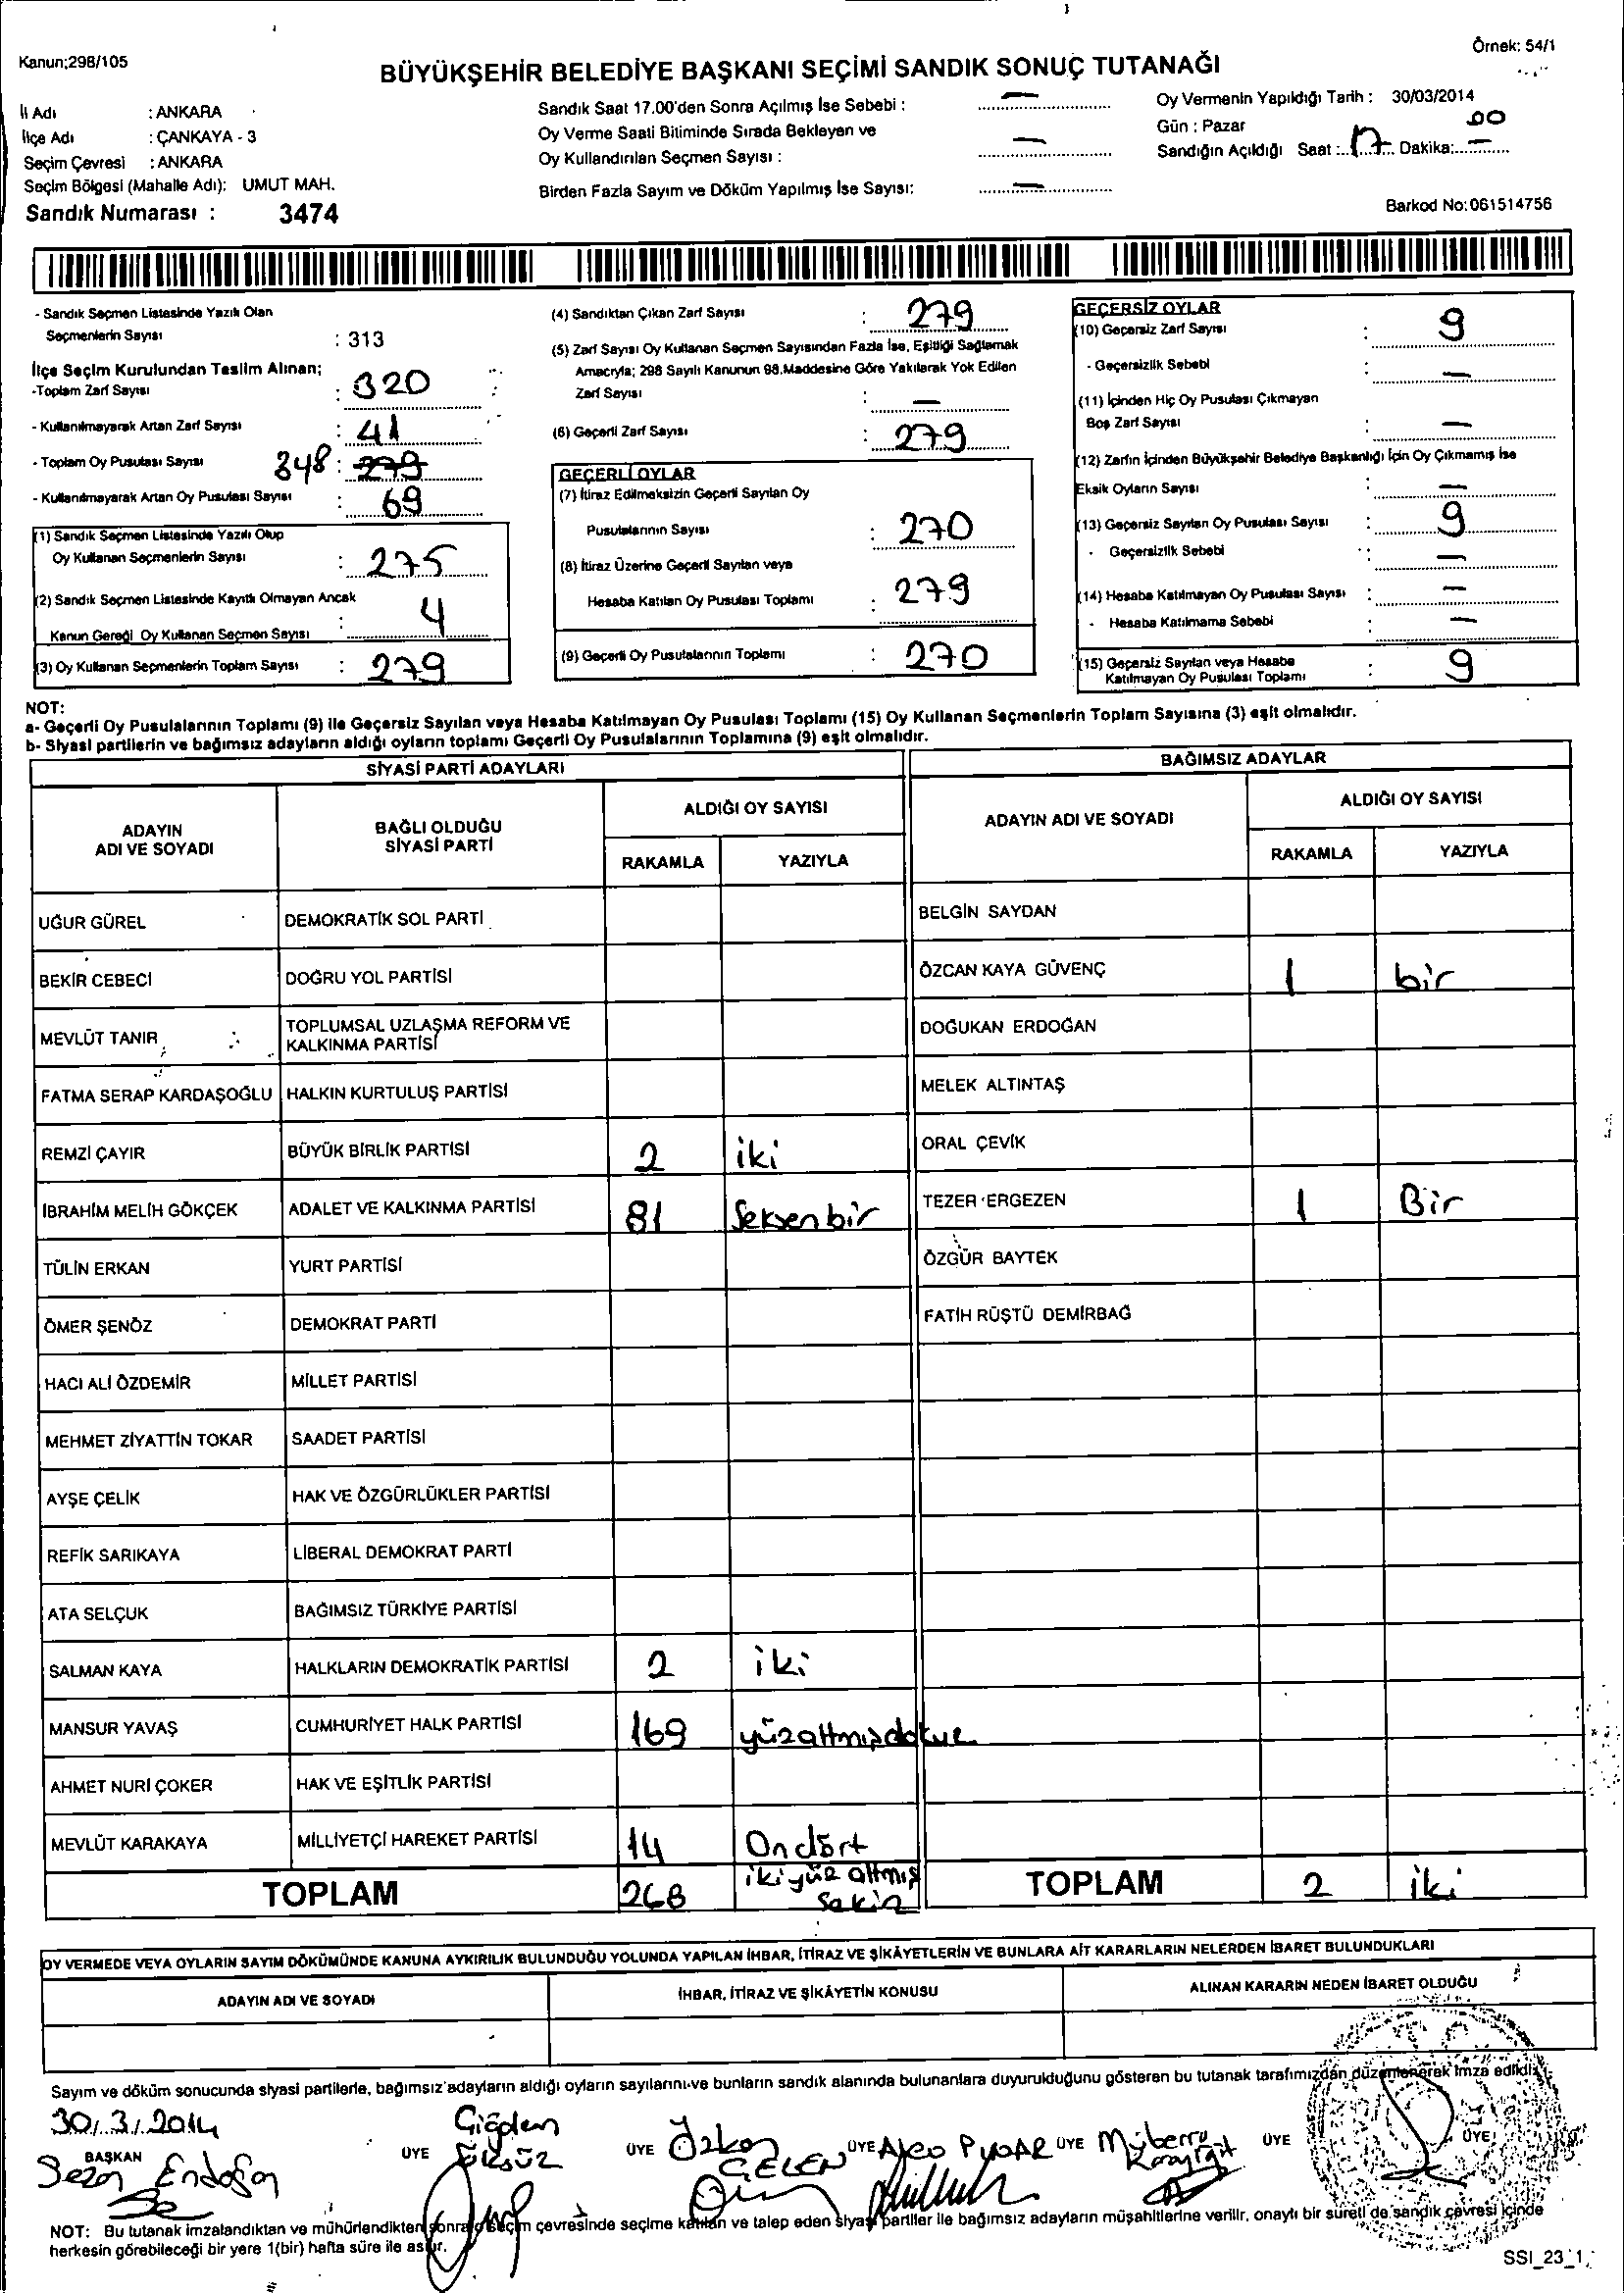 Kanun;298/105
Örnek: 54/1
BÜYÜKŞEHİR BELEDİYE BAŞKANI SEÇİMİ SANDIK SONUÇ TUTANAĞI
İl Adı : ANKARA
İlçe Adı : ÇANKAYA - 3
Seçim Çevresi : ANKARA
Seçim Bölgesi (Mahalle Adı): UMUT MAH.
Sandık Numarası : 3474
Sandık Saat 17.00'den Sonra Açılmış İse Sebebi : —
Oy Verme Saati Bitiminde Sırada Bekleyen ve
Oy Kullandırılan Seçmen Sayısı : —
Birden Fazla Sayım ve Döküm Yapılmış İse Sayısı: —
Oy Vermenin Yapıldığı Tarih : 30/03/2014
Gün : Pazar
Sandığın Açıldığı Saat : 17 Dakika: 00
Barkod No:061514756
- Sandık Seçmen Listesinde Yazılı Olan
Seçmenlerin Sayısı : 313
İlçe Seçim Kurulundan Teslim Alınan;
-Toplam Zarf Sayısı : 320
- Kullanılmayarak Artan Zarf Sayısı : 41
- Toplam Oy Pusulası Sayısı 348 : 279
- Kullanılmayarak Artan Oy Pusulası Sayısı : 69
(1) Sandık Seçmen Listesinde Yazılı Olup
Oy Kullanan Seçmenlerin Sayısı : 275
(2) Sandık Seçmen Listesinde Kayıtlı Olmayan Ancak
Kanun Gereği Oy Kullanan Seçmen Sayısı : 4
(3) Oy Kullanan Seçmenlerin Toplam Sayısı : 279
(4) Sandıktan Çıkan Zarf Sayısı : 279
(5) Zarf Sayısı Oy Kullanan Seçmen Sayısından Fazla İse, Eşitliği Sağlamak
Amacıyla; 298 Sayılı Kanunun 98.Maddesine Göre Yakılarak Yok Edilen
Zarf Sayısı : —
(6) Geçerli Zarf Sayısı : 279
GEÇERLİ OYLAR
(7) İtiraz Edilmeksizin Geçerli Sayılan Oy
Pusulalarının Sayısı : 270
(8) İtiraz Üzerine Geçerli Sayılan veya
Hesaba Katılan Oy Pusulası Toplamı : 279
(9) Geçerli Oy Pusulalarının Toplamı : 270
GEÇERSİZ OYLAR
(10) Geçersiz Zarf Sayısı : 9
- Geçersizlik Sebebi : —
(11) İçinden Hiç Oy Pusulası Çıkmayan
Boş Zarf Sayısı : —
(12) Zarfın İçinden Büyükşehir Belediye Başkanlığı İçin Oy Çıkmamış İse
Eksik Oyların Sayısı : —
(13) Geçersiz Sayılan Oy Pusulası Sayısı : 9
- Geçersizlik Sebebi : —
(14) Hesaba Katılmayan Oy Pusulası Sayısı : —
- Hesaba Katılmama Sebebi : —
(15) Geçersiz Sayılan veya Hesaba
Katılmayan Oy Pusulası Toplamı : 9
NOT:
a- Geçerli Oy Pusulalarının Toplamı (9) ile Geçersiz Sayılan veya Hesaba Katılmayan Oy Pusulası Toplamı (15) Oy Kullanan Seçmenlerin Toplam Sayısına (3) eşit olmalıdır.
b- Siyasi partilerin ve bağımsız adayların aldığı oyların toplamı Geçerli Oy Pusulalarının Toplamına (9) eşit olmalıdır.
SİYASİ PARTİ ADAYLARI
ADAYIN
ADI VE SOYADI
BAĞLI OLDUĞU
SİYASİ PARTİ
ALDIĞI OY SAYISI
RAKAMLA YAZIYLA
UĞUR GÜREL DEMOKRATİK SOL PARTİ
BEKİR CEBECİ DOĞRU YOL PARTİSİ
MEVLÜT TANIR TOPLUMSAL UZLAŞMA REFORM VE
KALKINMA PARTİSİ
FATMA SERAP KARDAŞOĞLU HALKIN KURTULUŞ PARTİSİ
REMZİ ÇAYIR BÜYÜK BİRLİK PARTİSİ 2 iki
İBRAHİM MELİH GÖKÇEK ADALET VE KALKINMA PARTİSİ 81 Seksenbir
TÜLİN ERKAN YURT PARTİSİ
ÖMER ŞENÖZ DEMOKRAT PARTİ
HACI ALİ ÖZDEMİR MİLLET PARTİSİ
MEHMET ZİYATTİN TOKAR SAADET PARTİSİ
AYŞE ÇELİK HAK VE ÖZGÜRLÜKLER PARTİSİ
REFİK SARIKAYA LİBERAL DEMOKRAT PARTİ
ATA SELÇUK BAĞIMSIZ TÜRKİYE PARTİSİ
SALMAN KAYA HALKLARIN DEMOKRATİK PARTİSİ 2 iki
MANSUR YAVAŞ CUMHURİYET HALK PARTİSİ 169 yüzaltmışdokuz
AHMET NURİ ÇOKER HAK VE EŞİTLİK PARTİSİ
MEVLÜT KARAKAYA MİLLİYETÇİ HAREKET PARTİSİ 14 Ondört
TOPLAM 268 ikiyüz altmış
sekiz
BAĞIMSIZ ADAYLAR
ADAYIN ADI VE SOYADI
ALDIĞI OY SAYISI
RAKAMLA YAZIYLA
BELGİN SAYDAN
ÖZCAN KAYA GÜVENÇ 1 bir
DOĞUKAN ERDOĞAN
MELEK ALTINTAŞ
ORAL ÇEVİK
TEZER ERGEZEN 1 Bir
ÖZGÜR BAYTEK
FATİH RÜŞTÜ DEMİRBAĞ
TOPLAM 2 iki
OY VERMEDE VEYA OYLARIN SAYIM DÖKÜMÜNDE KANUNA AYKIRILIK BULUNDUĞU YOLUNDA YAPILAN İHBAR, İTİRAZ VE ŞİKÂYETLERİN VE BUNLARA AİT KARARLARIN NELERDEN İBARET BULUNDUKLARI
ADAYIN ADI VE SOYADI İHBAR, İTİRAZ VE ŞİKÂYETİN KONUSU ALINAN KARARIN NEDEN İBARET OLDUĞU
Sayım ve döküm sonucunda siyasi partilerle, bağımsız adayların aldığı oyların sayılarını ve bunların sandık alanında bulunanlara duyurulduğunu gösteren bu tutanak tarafımızdan düzenlenerek imza edildi.
30/3/2014
BAŞKAN ÜYE ÜYE ÜYE ÜYE ÜYE ÜYE
Sezen Erdoğan
Çiğdem
Öksüz
Özkan
GELEN
PINAR
Müberra
NOT: Bu tutanak imzalandıktan ve mühürlendikten sonra seçim çevresinde seçime katılan ve talep eden siyasi partiler ile bağımsız adayların müşahitlerine verilir, onaylı bir sureti de sandık çevresi içinde
herkesin görebileceği bir yere 1(bir) hafta süre ile asılır.
SSI_23_1